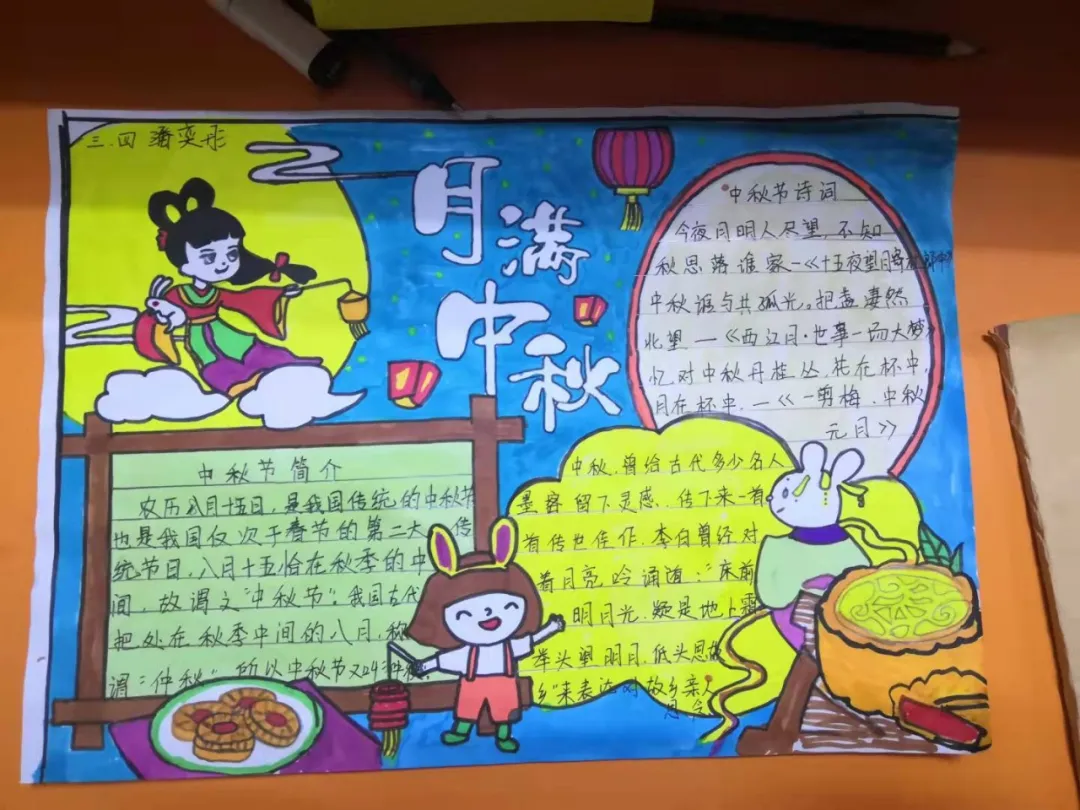 三.四 潘奕彤
月满中秋
中秋节诗词
今夜月明人尽望,不知
秋思落谁家—《十五夜望月寄
中秋谁与共孤光。把盏凄然
北望,—《西江月·世事一场大梦》
忆对中秋丹桂丛,花在杯中,
月在杯中,—《一剪梅.中秋
元月》
中秋节简介
农历八月十五日,是我国传统的中秋节
也是我国仅次于春节的第二大传
统节日,八月十五恰在秋季的中
间,故谓之"中秋节"。我国古代
把处在秋季中间的八月,称
谓:"仲秋",所以中秋节又叫"仲秋"。
中秋,曾给古代多少名人
墨客留下灵感.传下来一首
首传世佳作,李白曾经对
着月亮吟诵道:"床前
明月光,疑是地上霜
举头望明月,低头思故
乡"来表达对故乡亲人
思念